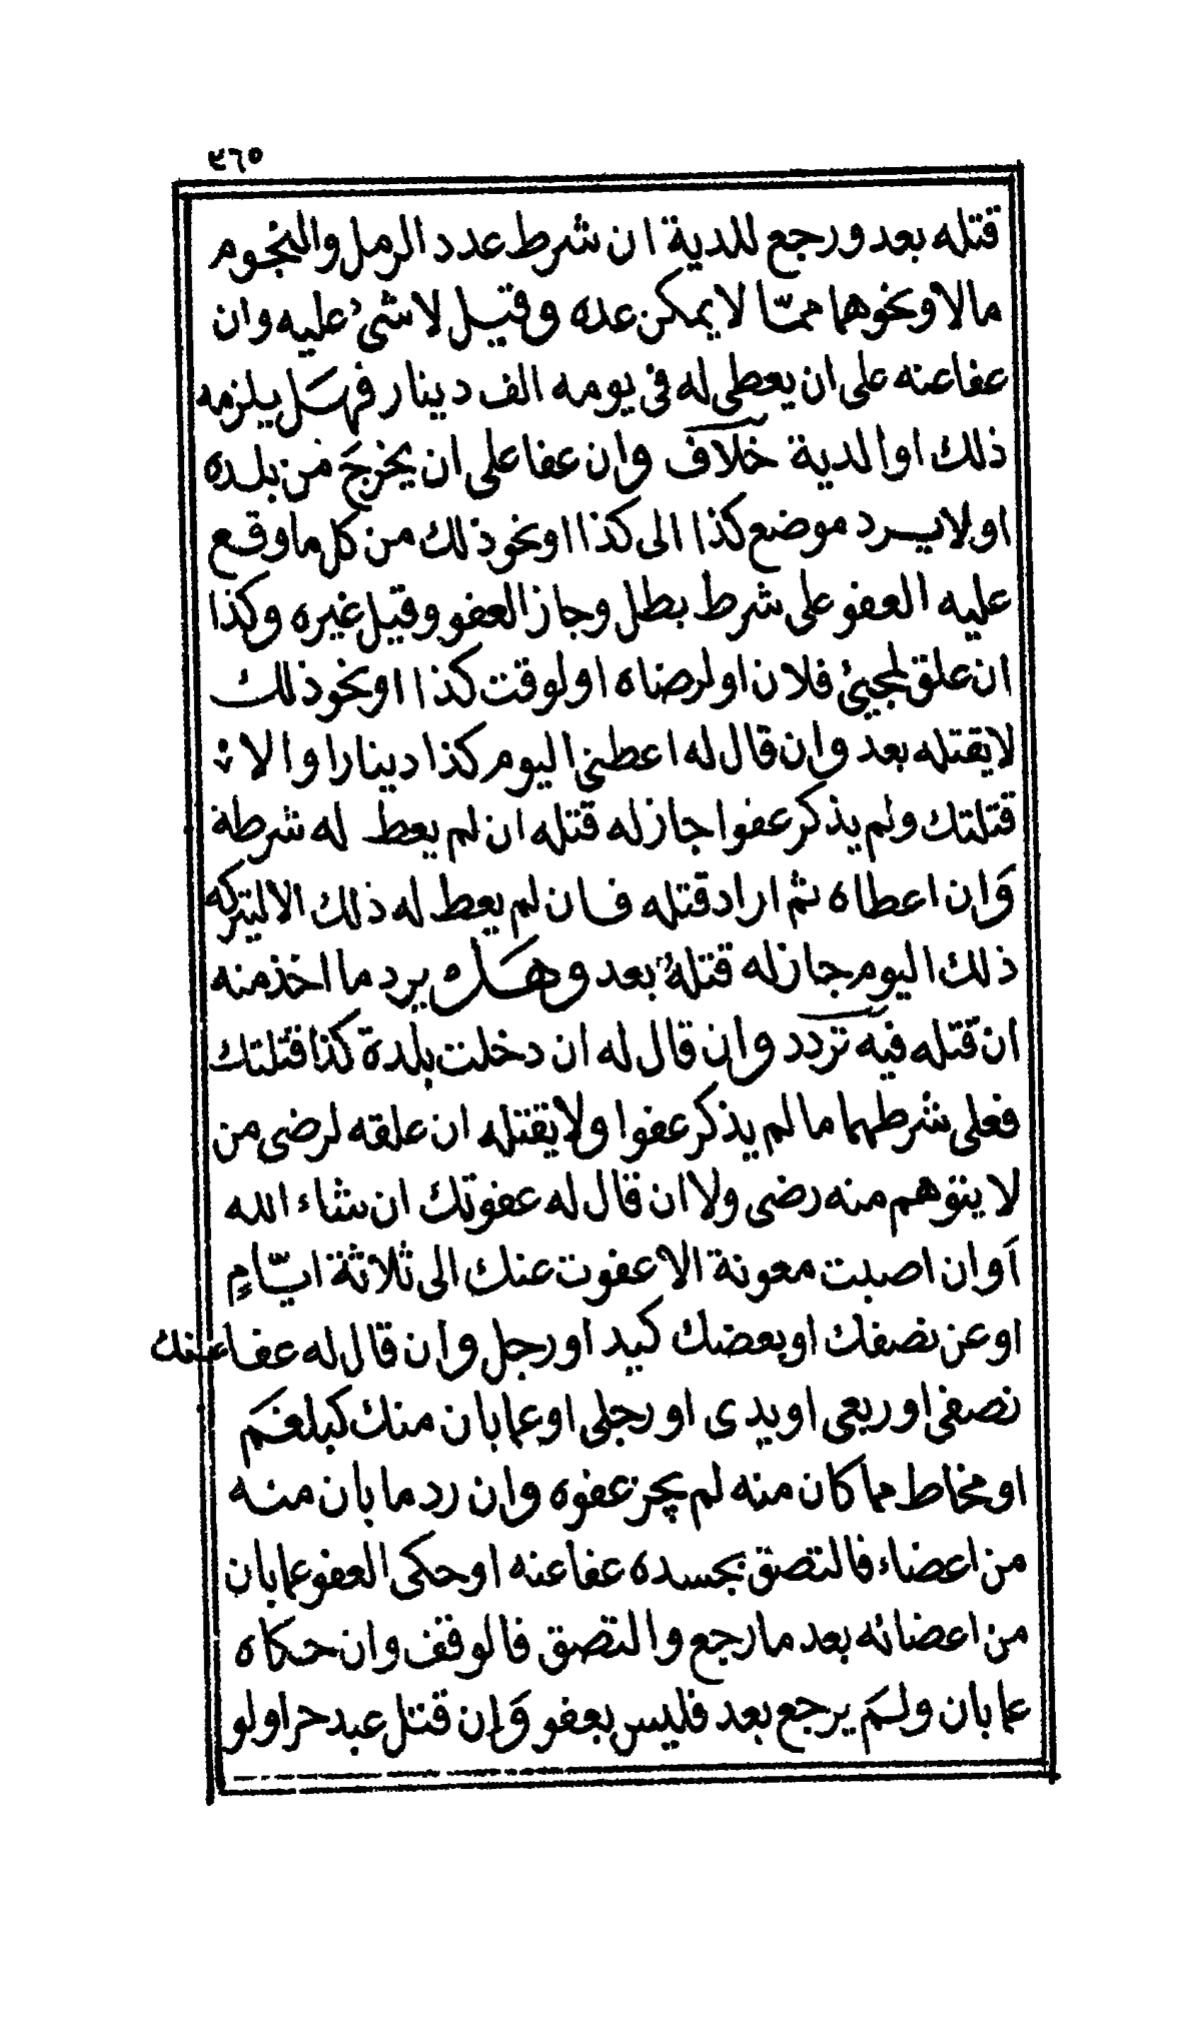 ٣٦٥
قتله بعد ورجع للدية ان شرط عدد الرمل والنجوم
مالا ونحوهما ممّا لا يمكن عده وقيل لا شئ عليه وان
عفا عنه على ان يعطى له فى يومه الف دينار فهل يلزمه
ذلك او الدية خلاف وان عفا على ان يخرج من بلده
او لا يرد موضع كذا الى كذا او نحو ذلك من كل ما وقع
عليه العفو على شرط بطل وجاز العفو وقيل غيره وكذا
ان علق لمجيئ فلان او لرضاه او لوقت كذا او نحو ذلك
لا يقتله بعد وان قال له اعطنى اليوم كذا دينارا والا
قتلتك ولم يذكر عفوا جاز له قتله ان لم يعط له شرطة
وان اعطاه ثم اراد قتله فان لم يعط له ذلك الا ليتركه
ذلك اليوم جاز له قتله بعد وهل يرد ما اخذ منه
ان قتله فيه تردد وان قال له ان دخلت بلدة كذا قتلتك
فعلى شرطهما ما لم يذكر عفوا ولا يقتله ان علقه لرضى من
لا يتوهم منه رضى ولا ان قال له عفوتك ان شاء الله
أو ان اصبت معونة الا عفوت عنك الى ثلاثة ايّام
او عن نصفك او بعضك كيد او رجل وان قال له عفا عنك
نصفى او ربعى او يدى او رجلى او عما بان منك كبلغم
او مخاط مما كان منه لم يجز عفوه وان رد ما بان منه
من اعضاء فالتصق بجسده عفا عنه او حكى العفو عما بان
من اعضائه بعد ما رجع والتصق فالوقف وان حكاه
عما بان ولم يرجع بعد فليس بعفو وإن قتل عبد حرا ولو